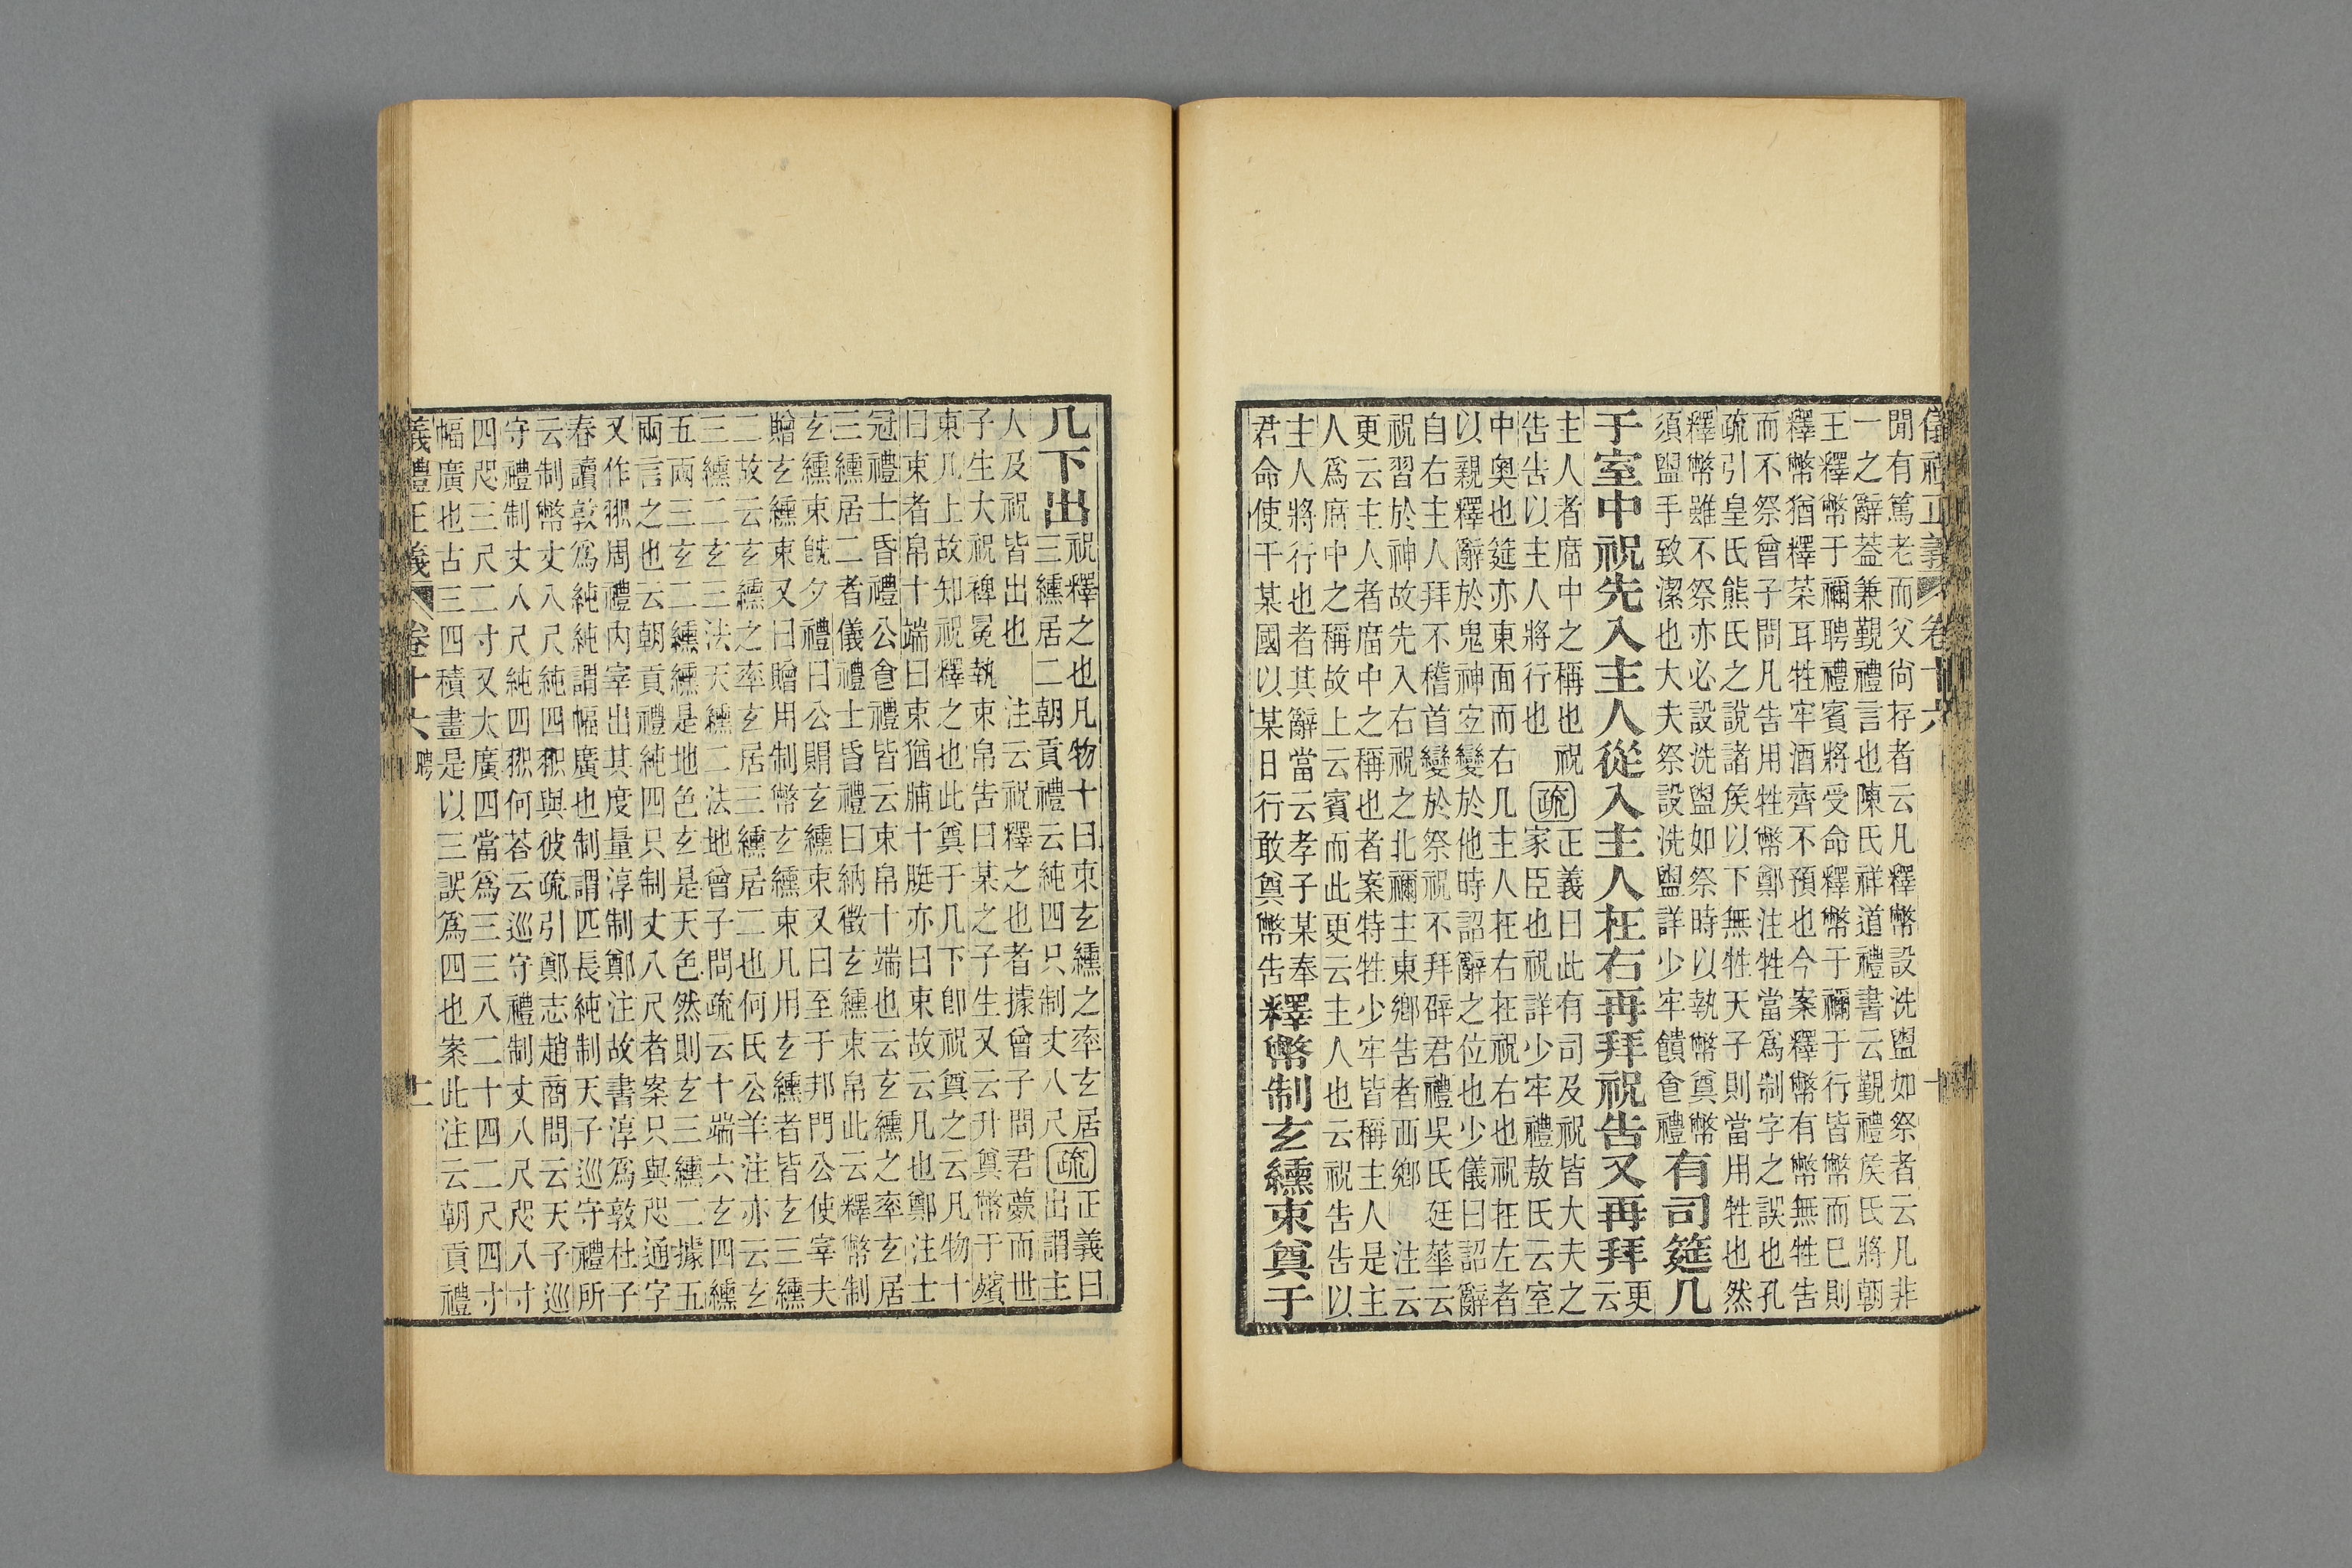 儀禮正義 卷十六 十
聞有篤老而父尙存者云凡釋幣設洗盥如祭者云凡非
一之辭葢兼覲禮言也陳氏祥道禮書云覲禮矦氏將朝
王釋幣于禰聘禮賓將受命釋幣于禰于行皆幣而已則
釋幣猶釋菜耳牲牢酒齊不預也今案釋幣有幣無牲告
而不祭曾子問凡告用牲幣鄭注牲當爲制字之誤也孔
疏引皇氏熊氏之說諸矦以下無牲天子則當用牲也然
釋幣雖不祭亦必設洗盥如祭時以執幣奠幣
須盥手致潔也大夫祭設洗盥詳少牢饋食禮
有司筵几
于室中祝先入主人從入主人在右再拜祝告又再拜
更
云
主人者廟中之稱也祝
告告以主人將行也
疏
正義曰此有司及祝皆大夫之
家臣也祝詳少牢禮敖氏云室
中奧也筵亦東面而右几主人在右在祝右也祝在左者
以親釋辭於鬼神宐變於他時詔辭之位也少儀曰詔辭
自右主人拜不稽首變於祭祝不拜辟君禮吳氏廷華云
祝習於神故先入右祝之北禰主東鄉告者西鄉 注云
更云主人者廟中之稱也者案特牲少牢皆稱主人是主
人爲廟中之稱故上云賓而此更云主人也云祝告告以
主人將行也者其辭當云孝子某奉
君命使干某國以某日行敢奠幣告
釋幣制玄纁束奠于
几下出
祝釋之也凡物十曰束玄纁之率玄居
三纁居二朝貢禮云純四只制丈八尺
疏
正義曰
出謂主
人及祝皆出也 注云祝釋之也者據曾子問君薨而世
子生大祝裨冕執束帛告曰某之子生又云升奠幣于殯
東几上故知祝釋之也此奠于几下卽祝奠之云凡物十
曰束者帛十端曰束猶脯十脡亦曰束故云凡也鄭注士
冠禮士昏禮公食禮皆云束帛十端也云玄纁之率玄居
三纁居二者儀禮士昏禮曰納徵玄纁束帛此云釋幣制
玄纁束旣夕禮曰公賵玄纁束又曰至于邦門公使宰夫
贈玄纁束又曰贈用制幣玄纁束凡用玄纁者皆玄三纁
二故云玄纁之率玄居三纁居二也何氏公羊注亦云玄
三纁二玄三法天纁二法地曾子問疏云十端六玄四纁
五兩三玄二纁纁是地色玄是天色然則玄三纁二據五
兩言之也云朝貢禮純四只制丈八尺者案只與咫通字
又作𦐇周禮內宰出其度量淳制鄭注故書淳爲敦杜子
春讀敦爲純純謂幅廣也制謂匹長純制天子巡守禮所
云制幣丈八尺純四𦐇與彼疏引鄭志趙商問云天子巡
守禮制丈八尺純四𦐇何荅云巡守禮制丈八尺咫八寸
四咫三尺二寸又大廣四當爲三三八二十四二尺四寸
幅廣也古三四積畫是以三誤爲四也案此注云朝貢禮
義禮正義 卷十六 聘